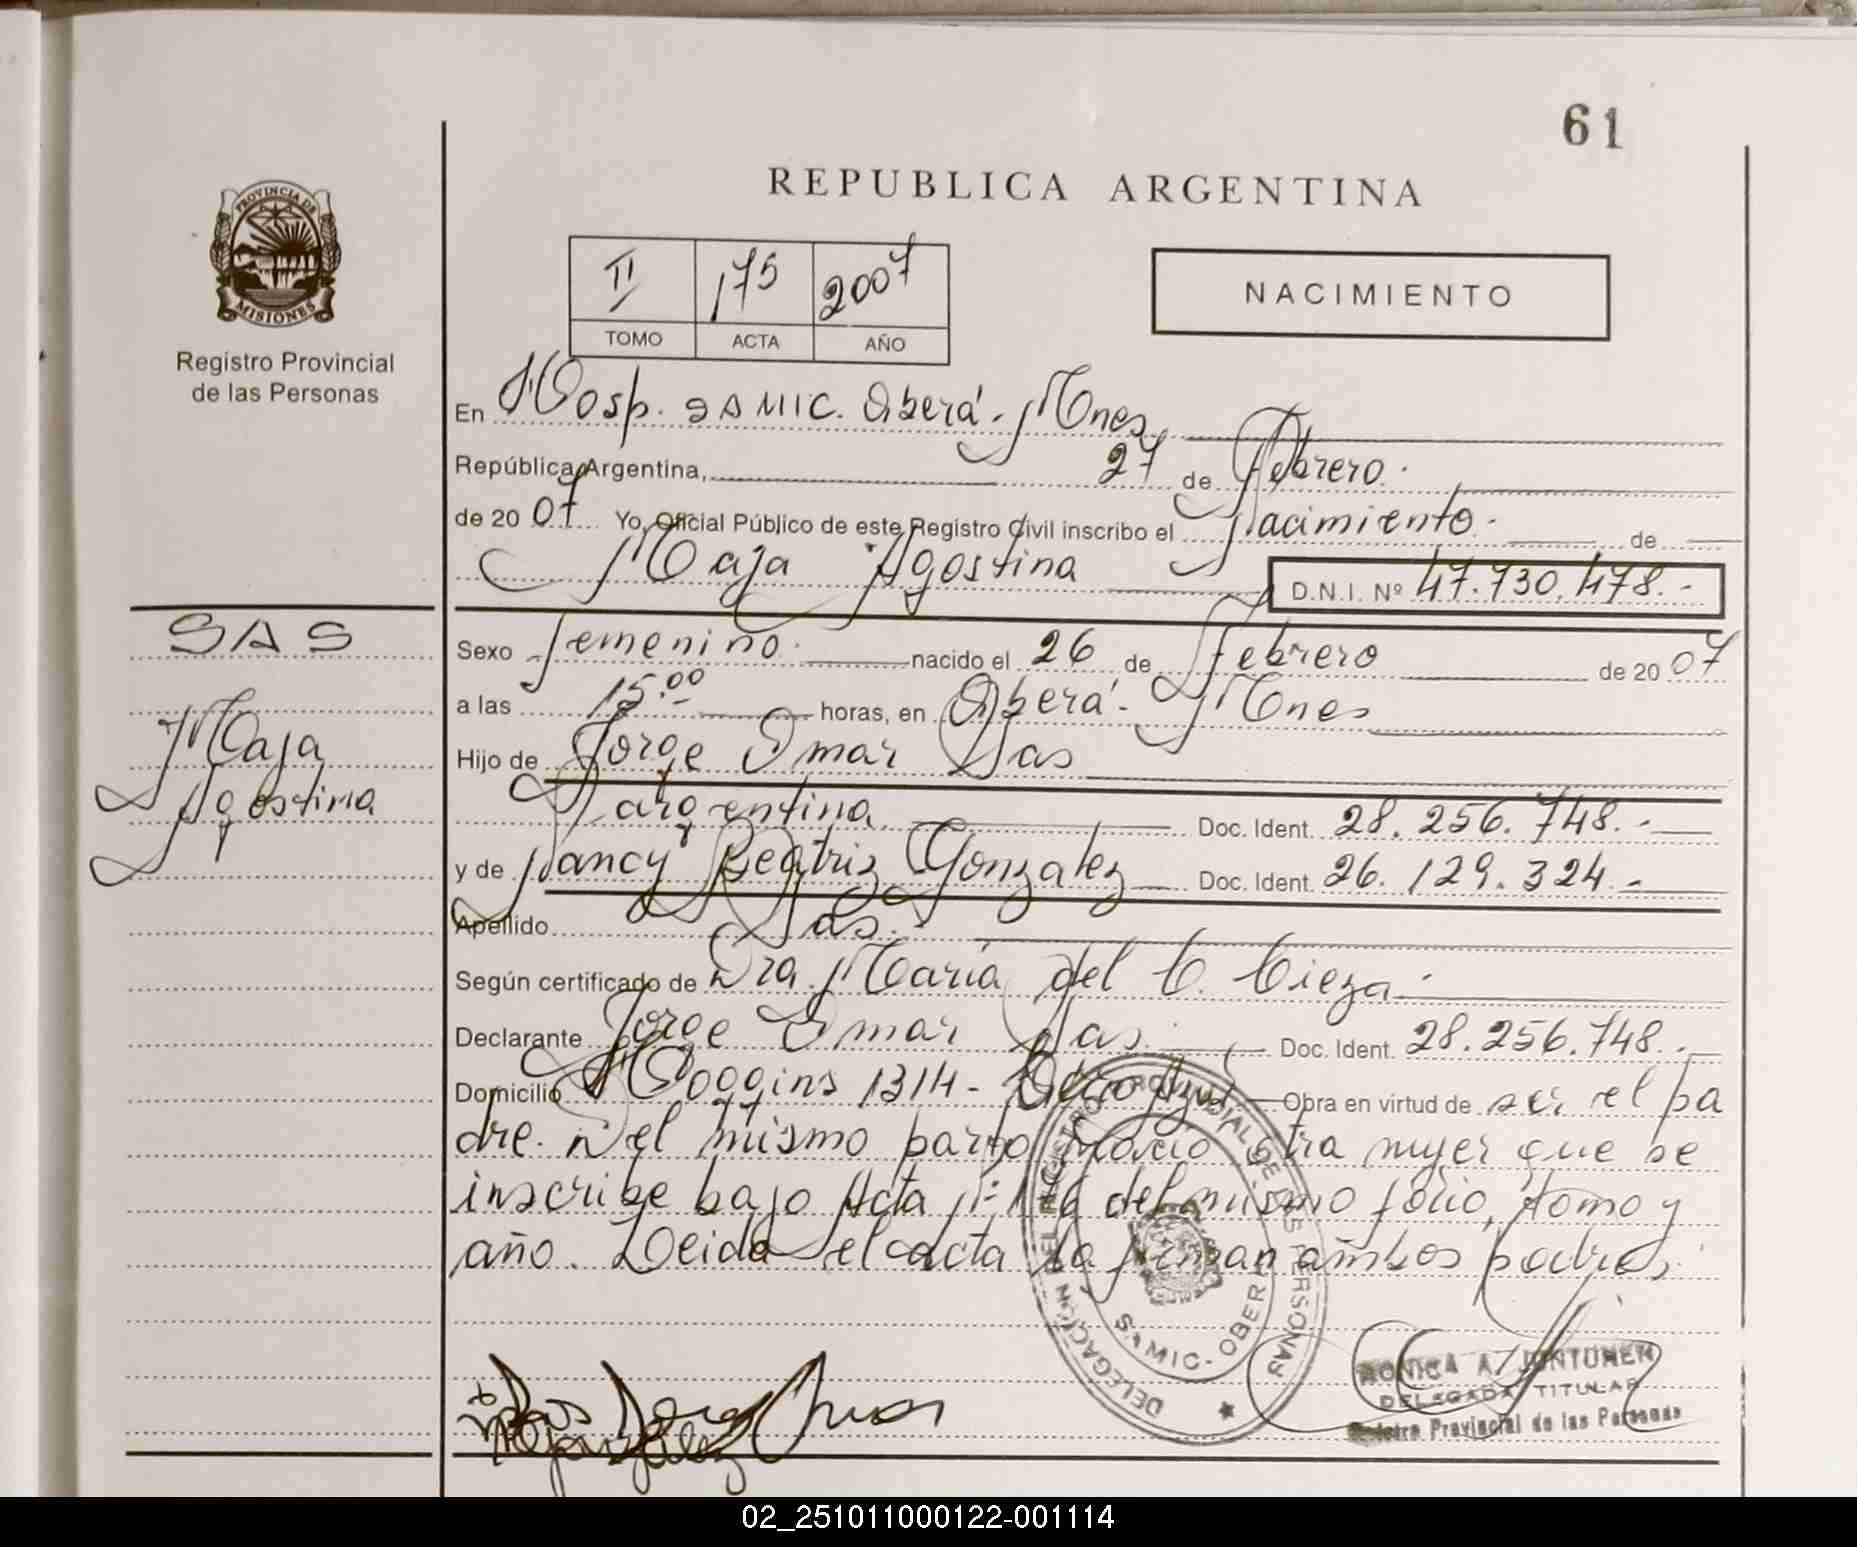 61
REPUBLICA ARGENTINA
PROVINCIA DE
MISIONES
Registro Provincial
de las Personas
II 175 2007
TOMO ACTA AÑO
NACIMIENTO
En Hosp. SAMIC. Oberá. Mnes
República Argentina, 27 de Febrero.
de 20 07 Yo, Oficial Público de este Registro Civil inscribo el Nacimiento. de
Maja Agostina D.N.I. Nº 47.730.478.-
SAS
Maja
Agostina
Sexo femenino. nacido el 26 de febrero de 20 07
a las 15.00 horas, en Oberá. Mnes
Hijo de Jorge Omar Sas
argentina Doc. Ident. 28.256.748.-
y de Nancy Beatriz Gonzalez Doc. Ident. 26.129.324.-
Apellido Sas.
Según certificado de Dra. María del C. Cieza.
Declarante Jorge Omar Sas. Doc. Ident. 28.256.748.-
Domicilio 1314- Obra en virtud de ser el pa
dre. Del mismo parto nació otra mujer que se
inscribe bajo Acta Nº 176 del mismo folio, tomo y
año. Leida el acta la firman ambos padres.
DELEGACION DEL REGISTRO PROVINCIAL DE LAS PERSONAS
SAMIC - OBERA
A. JUNTUNEN
DELEGADA TITULAR
Registro Provincial de las Personas
Sas Jorge Omar
02_251011000122-001114